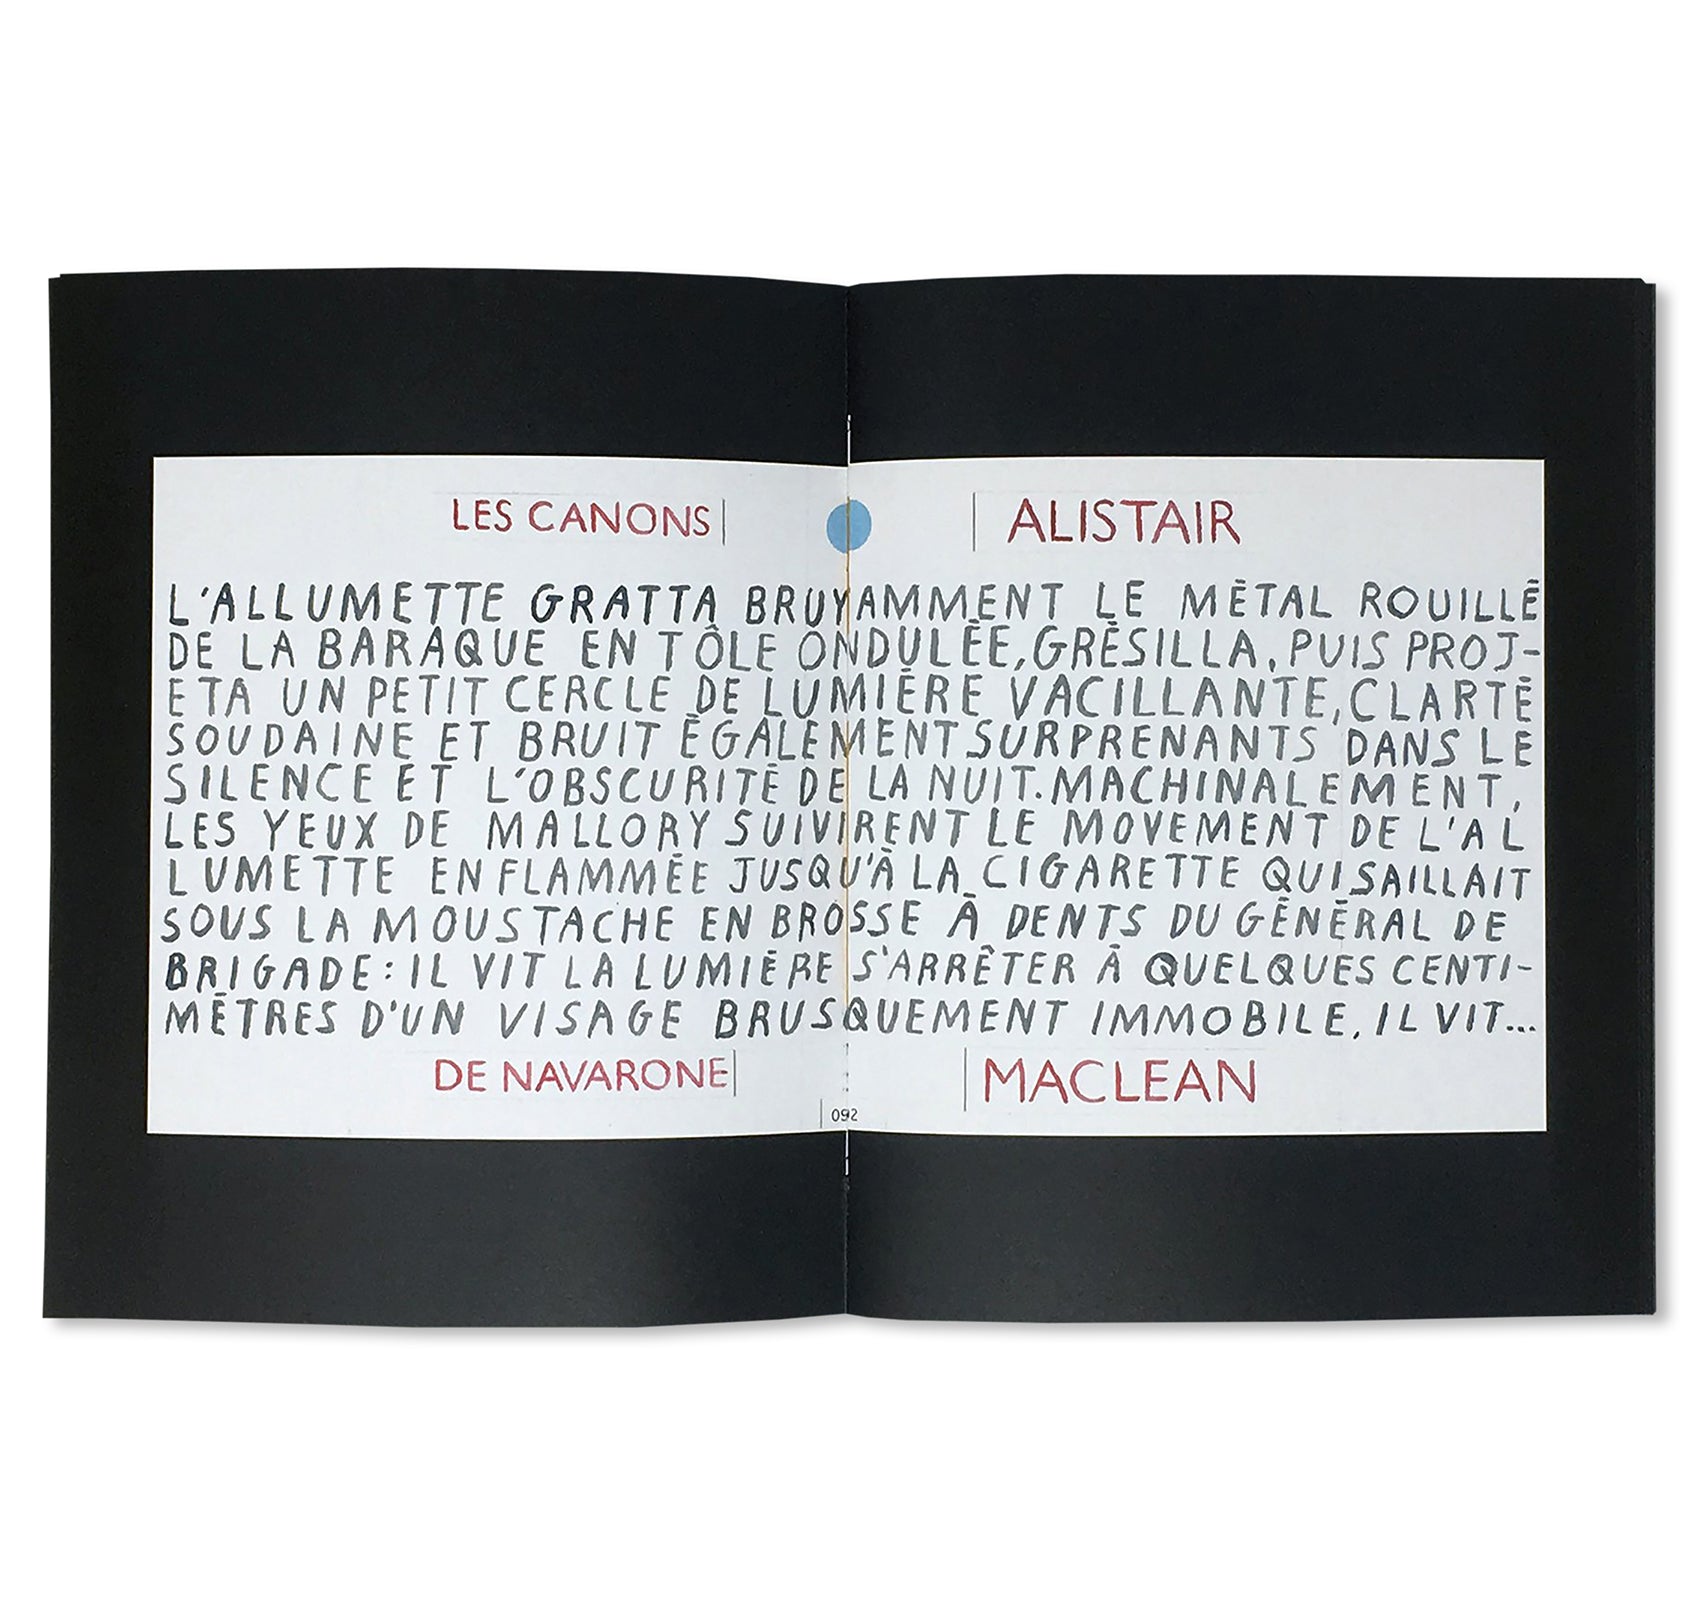 LES CANONS
ALISTAIR
L'ALLUMETTE GRATTA BRUYAMMENT LE MÉTAL ROUILLÉ
DE LA BARAQUE EN TÔLE ONDULÉE, GRÉSILLA, PUIS PROJ-
ETA UN PETIT CERCLE DE LUMIÈRE VACILLANTE, CLARTÉ
SOUDAINE ET BRUIT ÉGALEMENT SURPRENANTS DANS LE
SILENCE ET L'OBSCURITÉ DE LA NUIT. MACHINALEMENT,
LES YEUX DE MALLORY SUIVIRENT LE MOVEMENT DE L'AL
LUMETTE ENFLAMMÉE JUSQU'À LA CIGARETTE QUI SAILLAIT
SOUS LA MOUSTACHE EN BROSSE À DENTS DU GÉNÉRAL DE
BRIGADE: IL VIT LA LUMIÈRE S'ARRÊTER À QUELQUES CENTI-
MÈTRES D'UN VISAGE BRUSQUEMENT IMMOBILE, IL VIT...
DE NAVARONE
MACLEAN
092